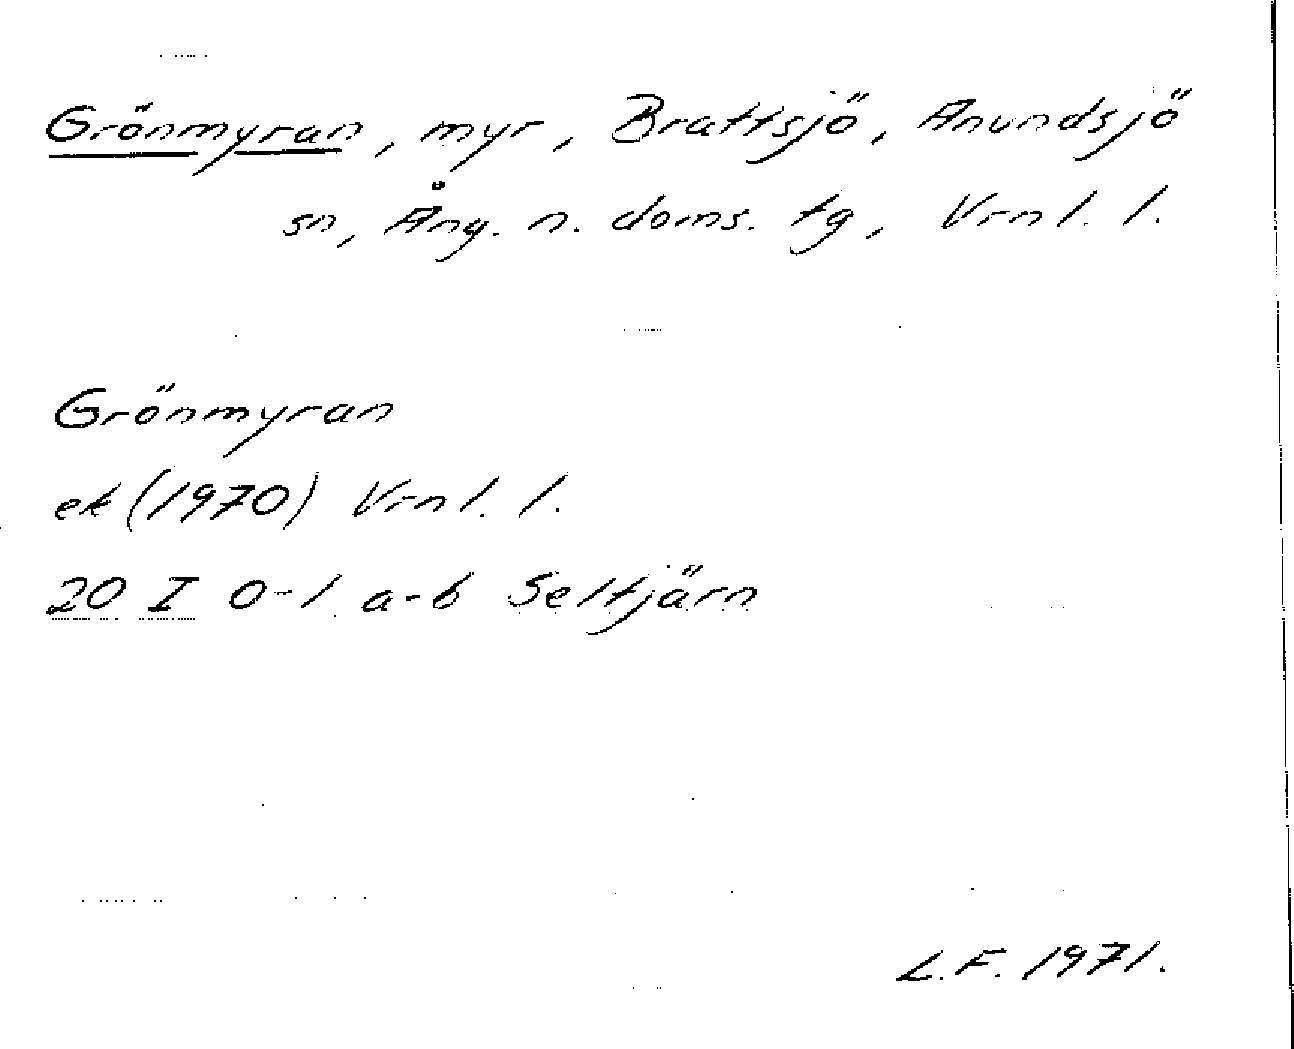 Grönmyran, myr, Brattsjö, Anundsjö
sn, Äng. n. doms. tg, Vrnl. l.
Grönmyran
ek (1970) Vrnl. l.
20 I 0-1 a-b Seltjärn
L.F. 1971.